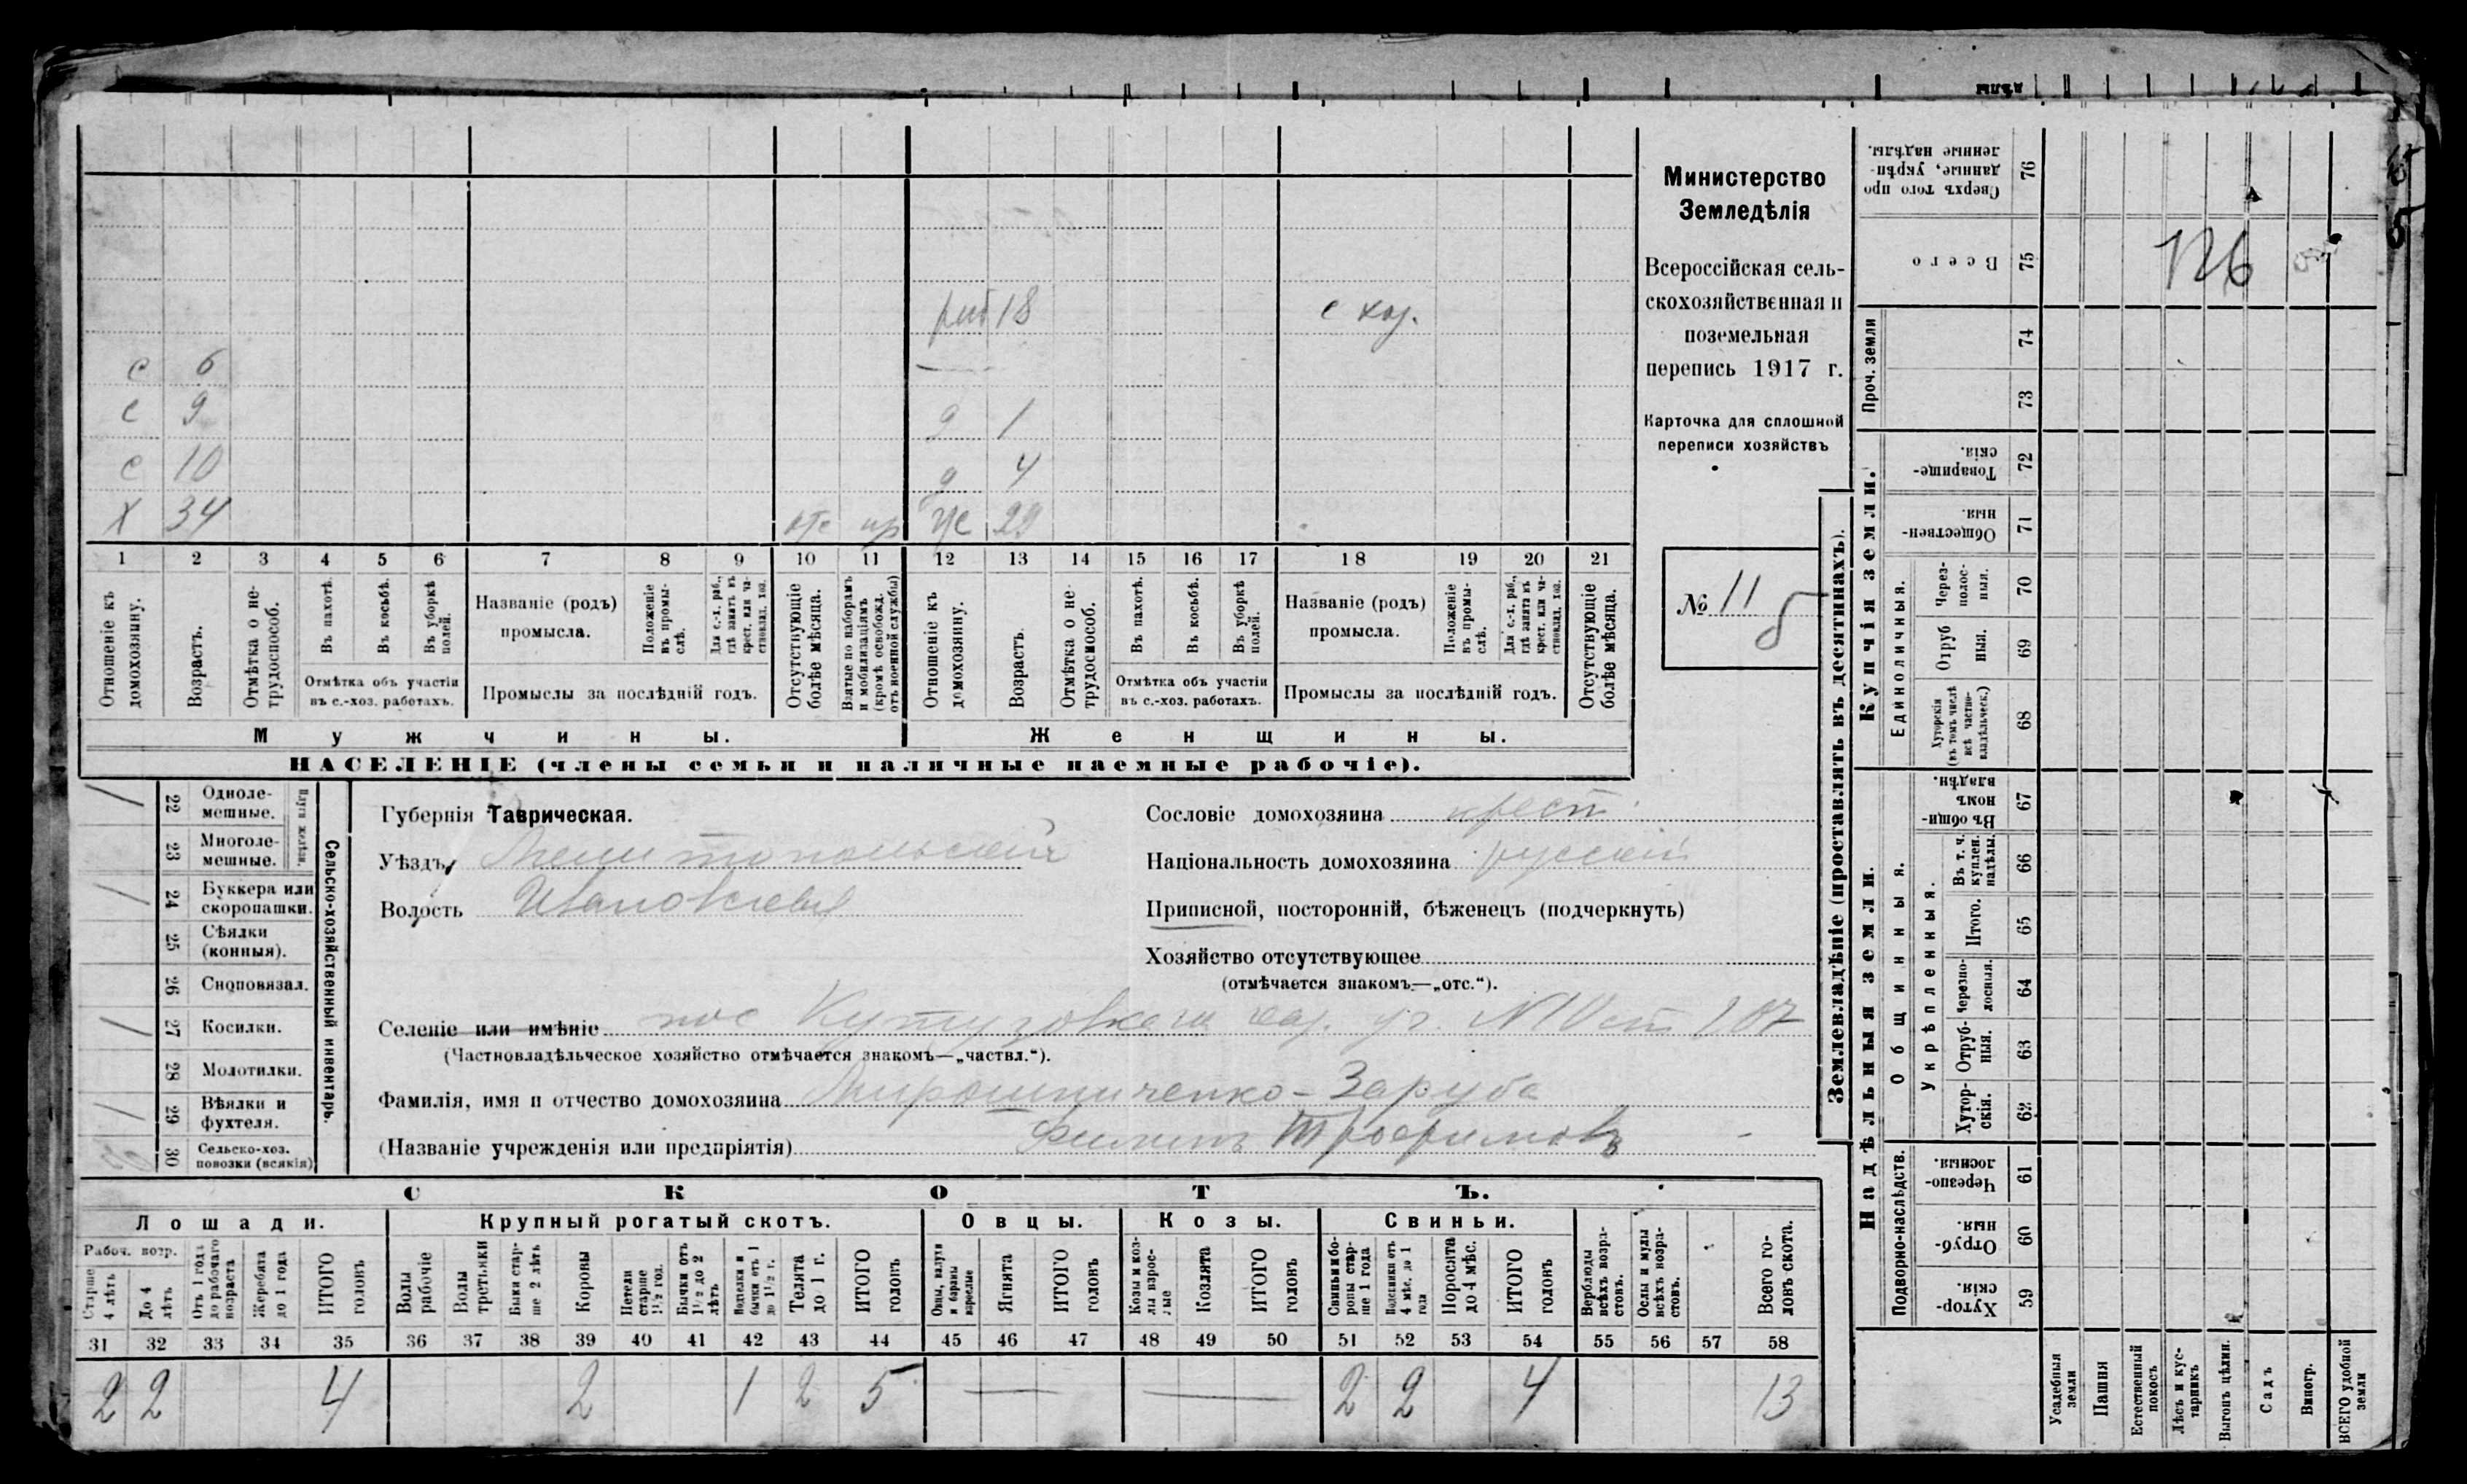 с 6
с 9
с 10
х 34 отс пр
18 с хоз.
д 1
д 4
ж 29
1 2 3 4 5 6 7 8 9 10 11 12 13 14 15 16 17 18 19 20 21
Отношеніе къ домохозяину.
Возрастъ.
Отмѣтка о нетрудоспособ.
Въ пахотѣ.
Въ косьбѣ.
Въ уборкѣ полей.
Отмѣтка объ участіи въ с.-хоз. работахъ.
Названіе (родъ) промысла.
Положеніе въ промыслѣ.
Для с.-х. раб., гдѣ занятъ въ крест. или частновлад. хоз.
Промыслы за послѣдній годъ.
Отсутствующіе болѣе мѣсяца.
Взятые по наборамъ и мобилизаціямъ (кромѣ освобожд. отъ военной службы)
Отношеніе къ домохозяину.
Возрастъ.
Отмѣтка о нетрудоспособ.
Въ пахотѣ.
Въ косьбѣ.
Въ уборкѣ полей.
Отмѣтка объ участіи въ с.-хоз. работахъ.
Названіе (родъ) промысла.
Положеніе въ промыслѣ.
Для с.-х. раб., гдѣ занята въ крест. или частновлад. хоз.
Промыслы за послѣдній годъ.
Отсутствующіе болѣе мѣсяца.
Мужчины. Женщины.
НАСЕЛЕНІЕ (члены семьи и наличные наемные рабочіе).
Министерство
Земледѣлія
Всероссійская сель-
скохозяйственная и
поземельная
перепись 1917 г.
Карточка для сплошной
переписи хозяйствъ
№ 11
б
/ 22 Однолемешные.
23 Многолемешные.
Плуги желѣзн.
/ 24 Буккера или скоропашки.
25 Сѣялки (конныя).
26 Сноповязал.
/ 27 Косилки.
28 Молотилки.
/ 29 Вѣялки и фухтеля.
30 Сельско-хоз. повозки (всякія)
Сельско-хозяйственный инвентарь.
Губернія Таврическая.
Уѣздъ Мелитопольскій
Волость Ивановская
Сословіе домохозяина крест.
Національность домохозяина русскій
Приписной, посторонній, бѣженецъ (подчеркнуть)
Хозяйство отсутствующее
(отмѣчается знакомъ—„отс.“).
Селеніе или имѣніе пос Кутузовка 187
(Частновладѣльческое хозяйство отмѣчается знакомъ—„частвл.“).
Фамилія, имя и отчество домохозяина Мирошниченко-Заруба
(Названіе учрежденія или предпріятія) Филиппъ Трофимовъ
СКОТЪ.
Лошади. Крупный рогатый скотъ. Овцы. Козы. Свиньи.
Рабоч. возр.
Старше 4 лѣтъ
До 4 лѣтъ
Отъ 1 года до рабочаго возраста
Жеребята до 1 года
ИТОГО головъ
Волы рабочіе
Волы третьяки
Быки старше 2 лѣтъ
Коровы
Нетели старше 1½ год.
Бычки отъ 1½ до 2 лѣтъ
Подтелки и бычки отъ 1 до 1½ г.
Телята до 1 г.
ИТОГО головъ
Овцы, валухи и бараны взрослые
Ягнята
ИТОГО головъ
Козы и козлы взрослые
Козлята
ИТОГО головъ
Свиньи и боровы старше 1 года
Подсвинки отъ 4 мѣс. до 1 года
Поросята до 4 мѣс.
ИТОГО головъ
Верблюды всѣхъ возрастовъ.
Ослы и мулы всѣхъ возрастовъ.
Всего головъ скота.
31 32 33 34 35 36 37 38 39 40 41 42 43 44 45 46 47 48 49 50 51 52 53 54 55 56 57 58
2 2 4 2 1 2 5 — — 2 2 4 13
Землевладѣніе (проставлять въ десятинахъ).
Купчія земли.
Надѣльныя земли.
Сверхъ того проданные, укрѣпленные надѣлы. 76
Всего 75 126
Проч. земли 74
73
Товарищескія. 72
Общественныя. 71
Единоличныя.
Черезполосныя. 70
Отрубныя. 69
Хуторскія (въ томъ числѣ всѣ частновладѣльческ.) 68
Общинныя.
Въ общинномъ владѣн. 67
Укрѣпленныя.
Въ т. ч. куплен. надѣлы. 66
Итого. 65
Черезполосныя. 64
Отрубныя. 63
Хуторскія. 62
Подворно-наслѣдств.
Черезполосныя. 61
Отрубныя. 60
Хуторскія. 59
Усадебныя земли
Пашня
Естественный покосъ
Лѣсъ и кустарникъ
Выгонъ цѣлин.
Садъ
Виногр.
ВСЕГО удобной земли